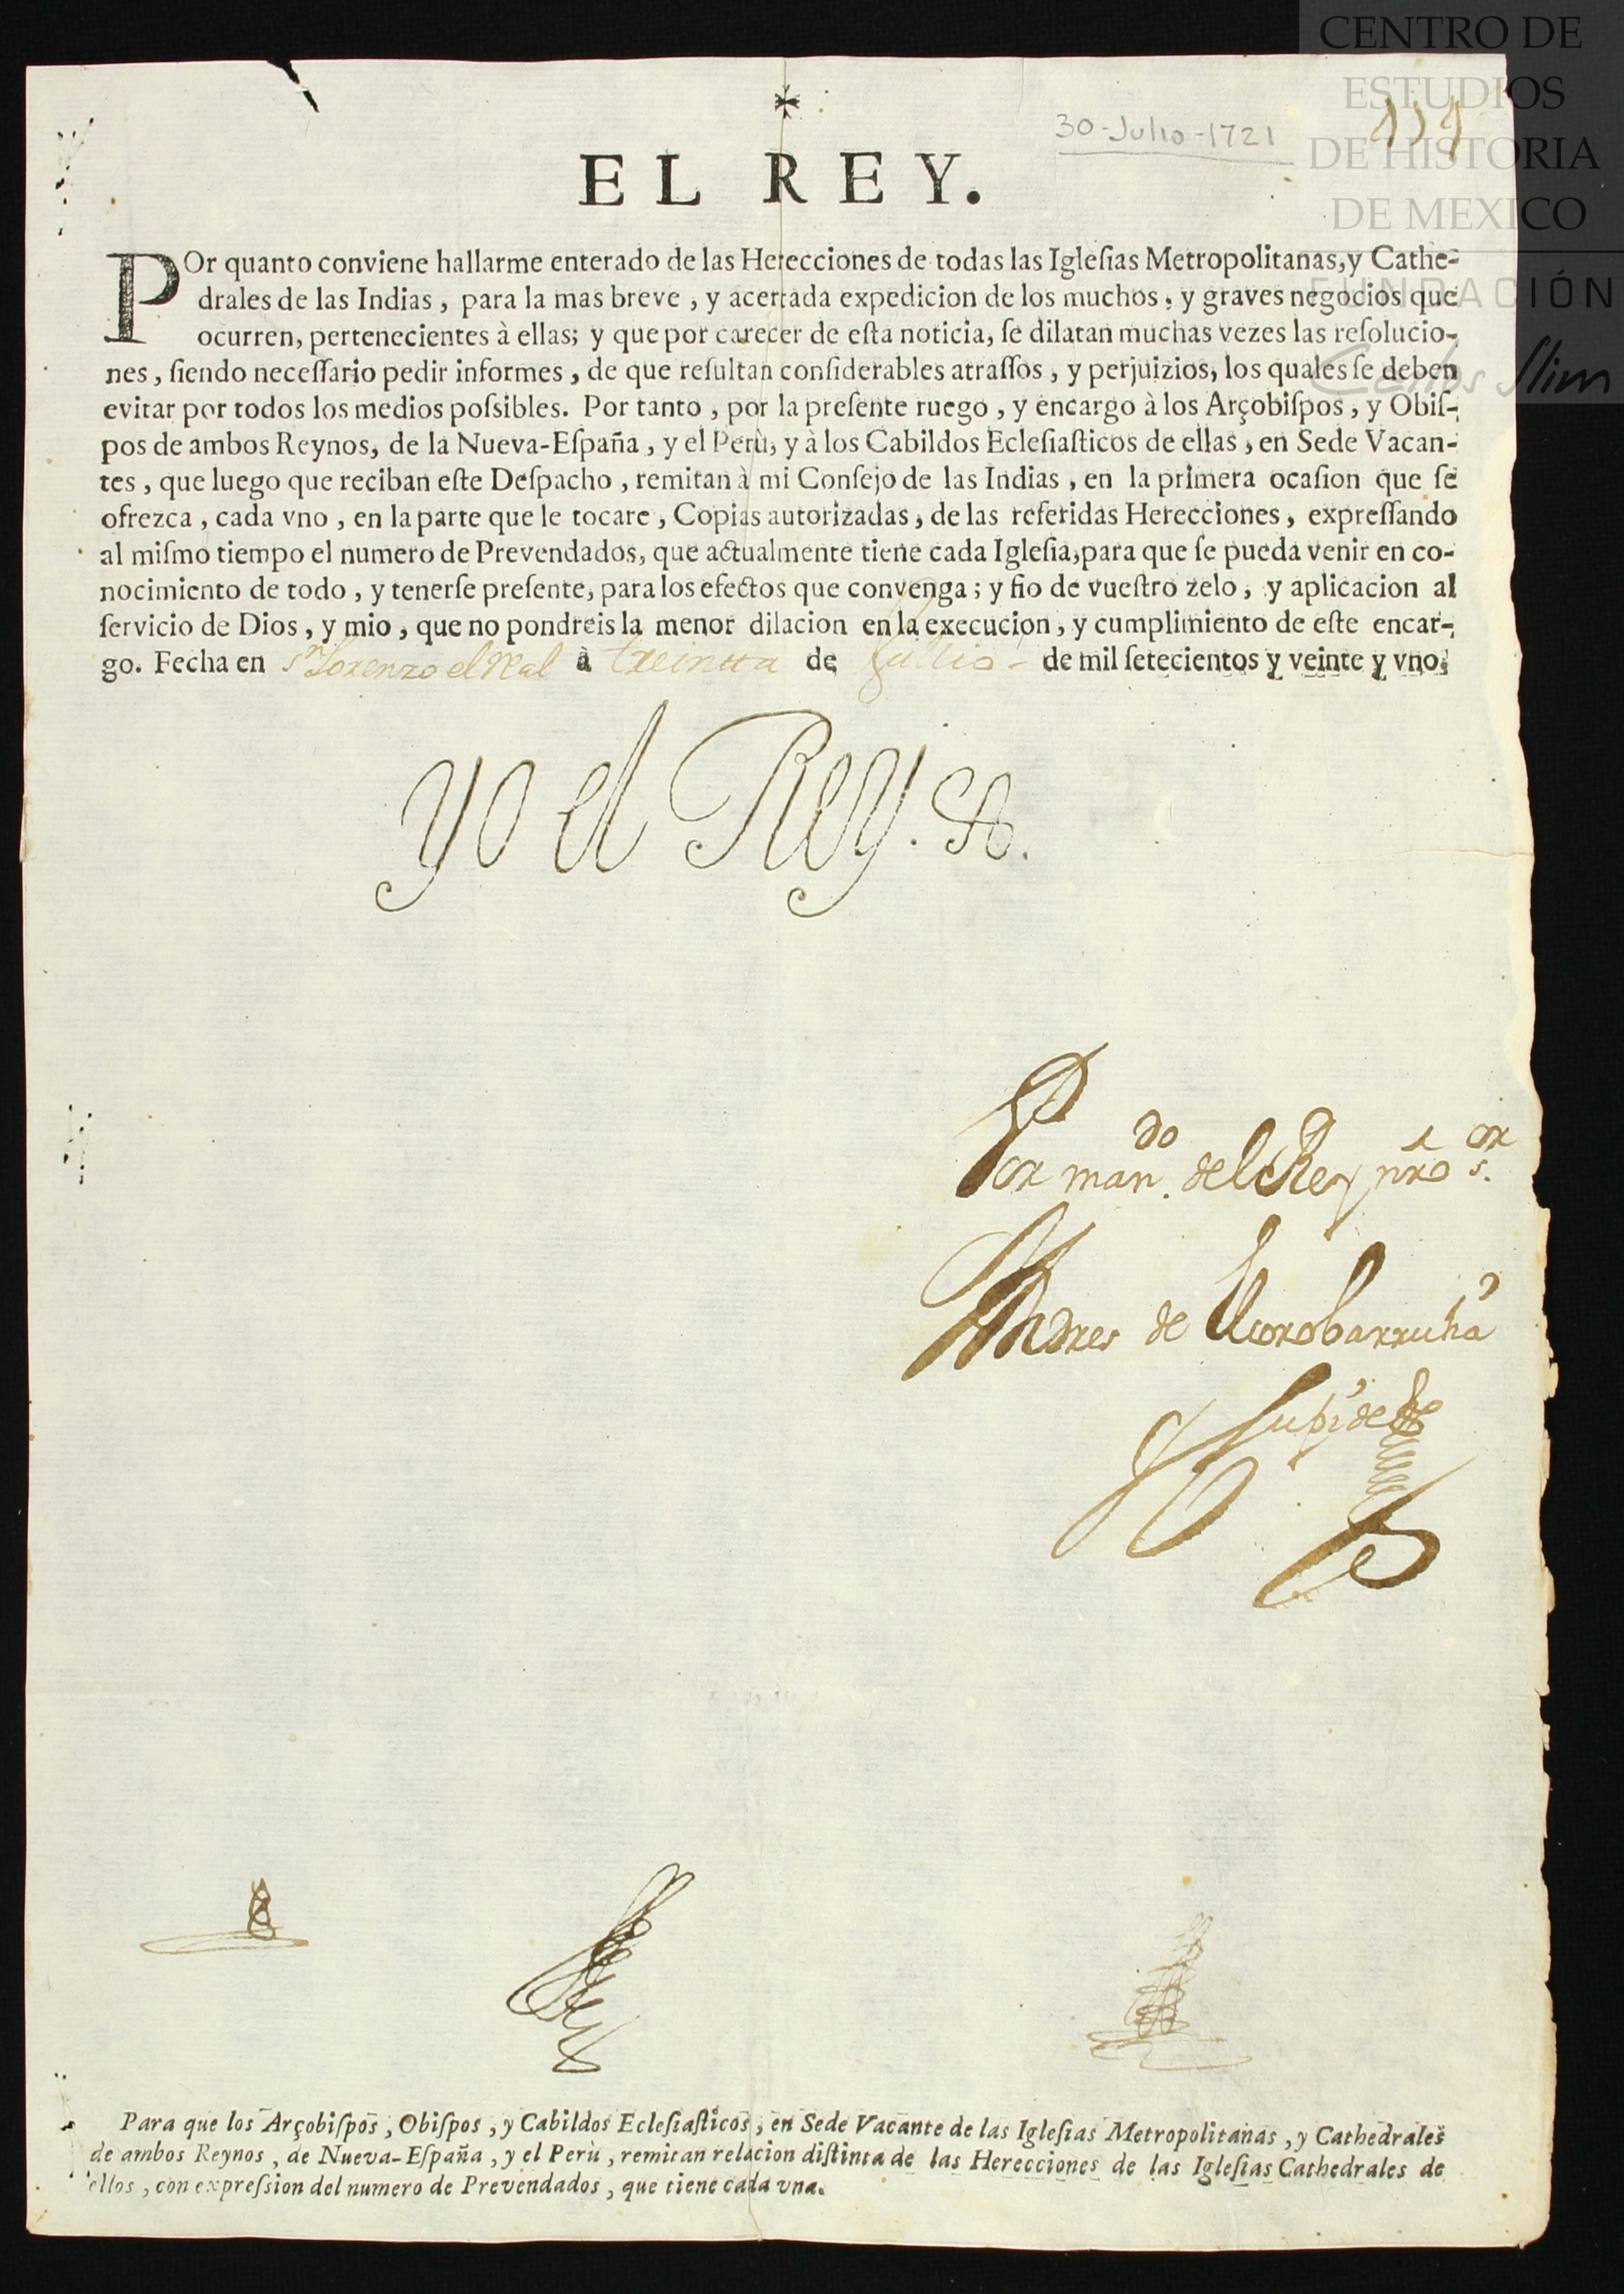 CENTRO DE
ESTUDIOS
DE HISTORIA
DE MEXICO
FUNDACIÓN
Carlos Slim
30-Julio-1721
EL REY.
POr quanto conviene hallarme enterado de las Herecciones de todas las Iglesias Metropolitanas, y Cathe-
drales de las Indias, para la mas breve, y acertada expedicion de los muchos, y graves negocios que
ocurren, pertenecientes à ellas; y que por carecer de esta noticia, se dilatan muchas vezes las resolucio-
nes, siendo necessario pedir informes, de que resultan considerables atrassos, y perjuizios, los quales se deben
evitar por todos los medios possibles. Por tanto, por la presente ruego, y encargo à los Arçobispos, y Obis-
pos de ambos Reynos, de la Nueva-España, y el Perù, y à los Cabildos Eclesiasticos de ellas, en Sede Vacan-
tes, que luego que reciban este Despacho, remitan à mi Consejo de las Indias, en la primera ocasion que se
ofrezca, cada vno, en la parte que le tocare, Copias autorizadas, de las referidas Herecciones, expressando
al mismo tiempo el numero de Prevendados, que actualmente tiene cada Iglesia, para que se pueda venir en co-
nocimiento de todo, y tenerse presente, para los efectos que convenga; y fio de vuestro zelo, y aplicacion al
servicio de Dios, y mio, que no pondreis la menor dilacion en la execucion, y cumplimiento de este encar-
go. Fecha en Sn Lorenzo el Real à treintta de Jullio de mil setecientos y veinte y vno.
Yo el Rey.
Por mando. del Rey nro sor.
Andres de Elcorobarrutia
Para que los Arçobispos, Obispos, y Cabildos Eclesiasticos, en Sede Vacante de las Iglesias Metropolitanas, y Cathedrales
de ambos Reynos, de Nueva-España, y el Perù, remitan relacion distinta de las Herecciones de las Iglesias Cathedrales de
ellos, con expression del numero de Prevendados, que tiene cada vna.